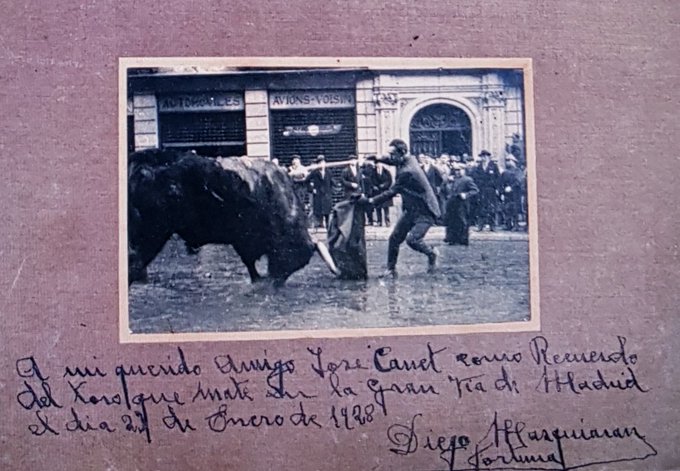 AUTOMOBILES
AVIONS-VOISIN
A mi querido Amigo José Canet como Recuerdo
del Toro que mate en la Gran Via de Madrid
el dia 23 de Enero de 1928
Diego Mazquiaran
Fortuna